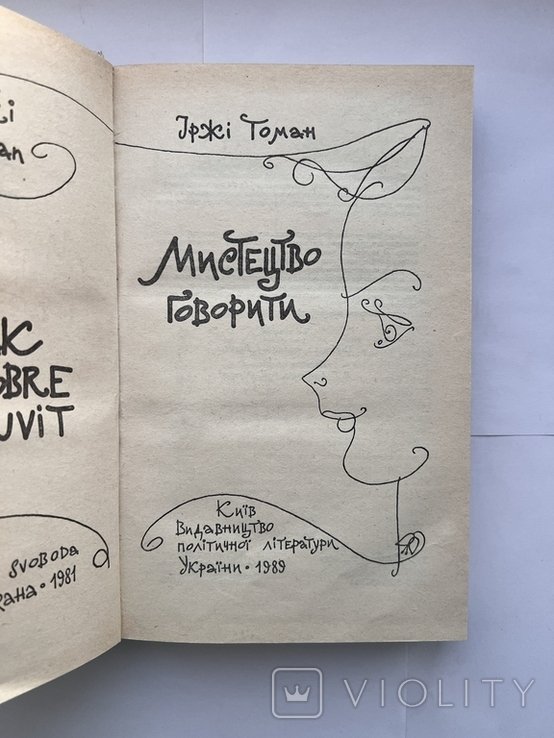 Іржі Томан
Мистецтво
говорити
Київ
Видавництво
політичної літератури
України • 1989
OBRE
UVIT
SVOBODA
1981
VIOLITY